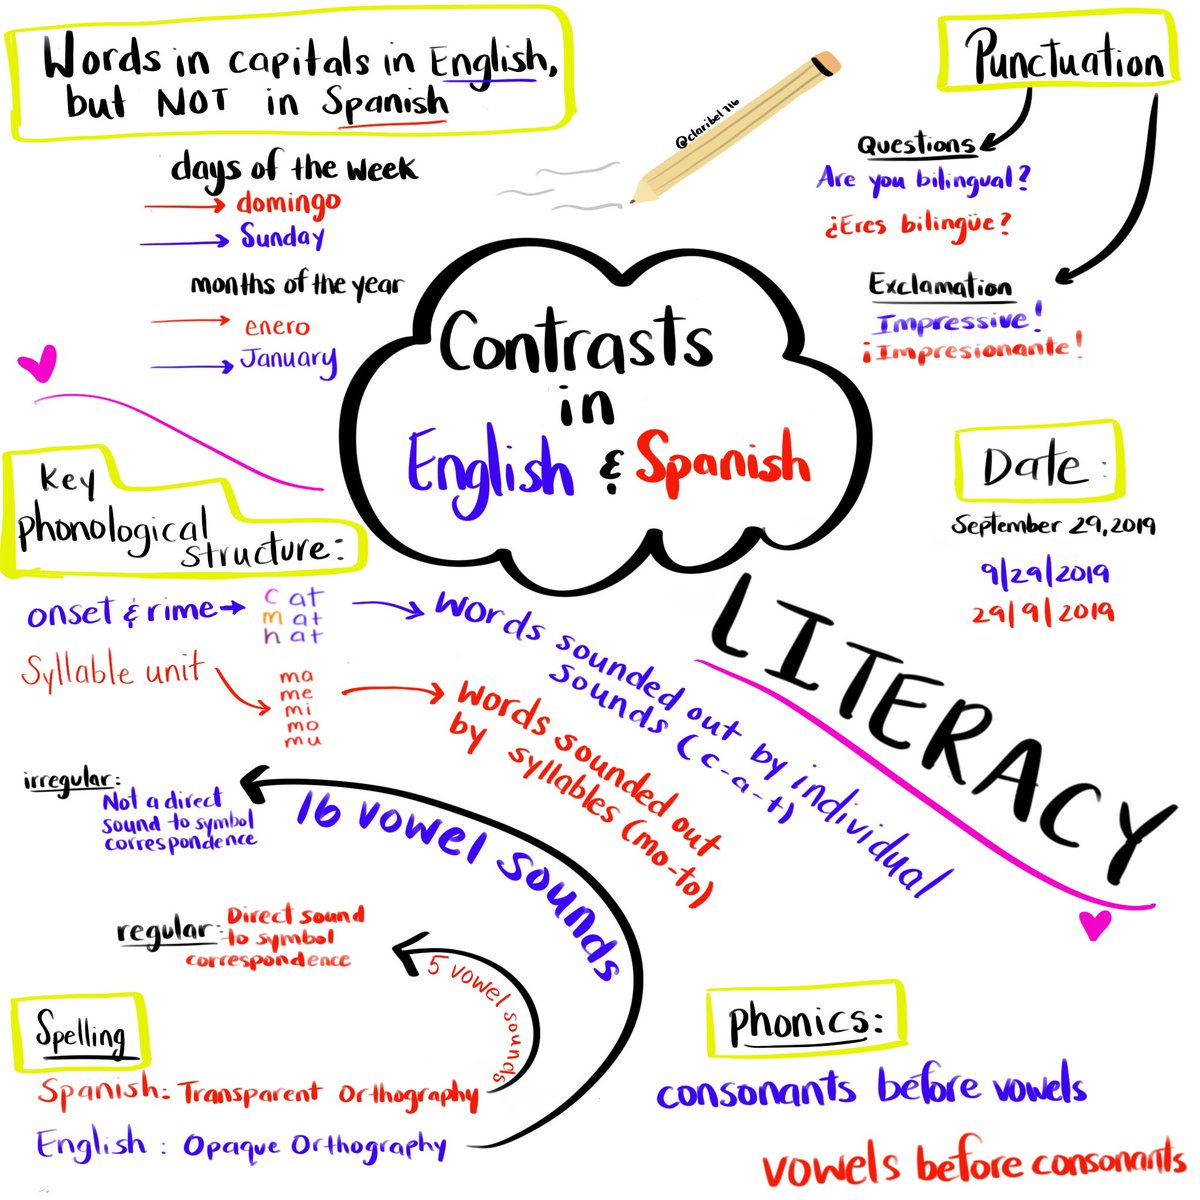 Words in capitals in English,
but NOT in Spanish
days of the week
domingo
Sunday
months of the year
enero
January
@claribel716
Punctuation
Questions
Are you bilingual?
¿Eres bilingüe?
Exclamation
Impressive!
¡Impresionante!
Contrasts
in
English & Spanish
Date:
September 29, 2019
9/29/2019
29/9/2019
LITERACY
Key
phonological
structure:
onset & rime
c at
m at
h at
words sounded out by individual
sounds (c-a-t)
Syllable unit
ma
me
mi
mo
mu
words sounded out
by syllables (mo-to)
irregular:
Not a direct
sound to symbol
correspondence
16 vowel sounds
regular: Direct sound
to symbol
correspondence
5 vowel sounds
Spelling
Spanish: Transparent Orthography
English: Opaque Orthography
Phonics:
consonants before vowels
vowels before consonants